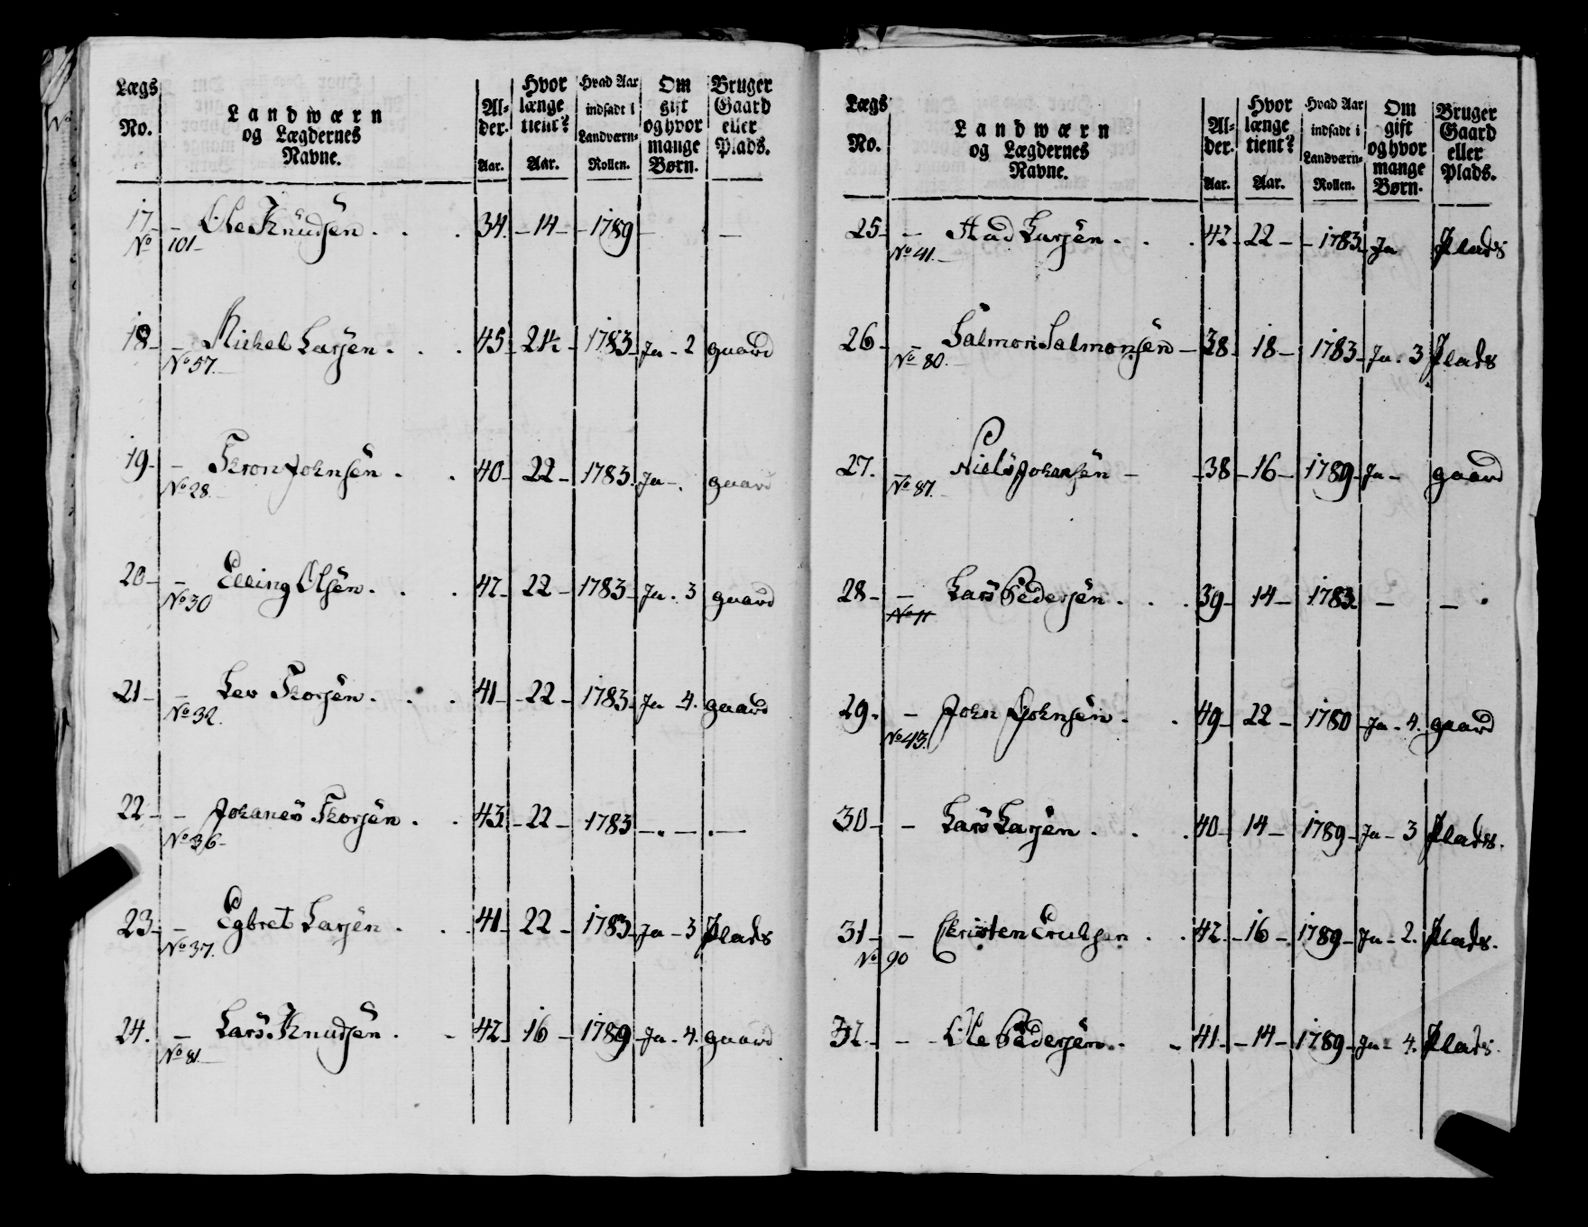 Lægs No. Landwærn og Lægdernes Navne. Al-der. Aar. Hvor længe tient? Aar. Hvad Aar indsadt i Landværn-Rollen. Om gift og hvor mange Børn. Bruger Gaard eller Plads.
17 – Ole Knudsen . . . 34. – 14 – – 1789 – –
No 101 –
18 – – Mickel Larsen . . . 45 – 21½ – 1783 – Ja – 2 gaard
No 57.
19 – – Thron Johnsen . . 40 – 22 – 1783. Ja – . gaard
No 28.
20 – – Elling Olsen . . . 42 – 22 – 1783 – Ja . 3 gaard
No 30
21 – – Lev Thorsen . . . 41 – – 22 – 1783 – Ja – 4. gaard
No 32.
22 – – Johanes Thorsen . . 43 – 22 – 1783 – . – . –
No 36 –
23 – – Egbret Larsen . . . 41 – 22 – 1783 – Ja – 3 Plads
No 37.
24. – Lars Knudsen . – 42 – 16 – 1789 – Ja – 4. gaard
No 81.
Lægs No. Landwærn og Lægdernes Navne. Al-der. Aar. Hvor længe tient? Aar. Hvad Aar indsadt i Landværn-Rollen. Om gift og hvor mange Børn. Bruger Gaard eller Plads.
25 – – Aad Larsen . . . 42 – 22 – – 1783 – Ja Plads
No 41.
26 – – Salmon Salmonsen – 38 – 18 – 1783 – Ja . 3 Plads
No 80.
27. – Niels Johansen – – 38 – 16 – 1789 – Ja – gaard
No 87.
28 – – Lars Pedersen . . . 39 – 14 – 1783 – – .
No 11
29. – John Johnsen . . 49 – 22 – 1780 – Ja – 4. gaard
No 43.
30 – – Lars Larsen . . . 40 – 14 – 1789 – Ja – 3 Plads.
31 – – Christen . . 42. – 16 – 1789 – Ja – 2. Plads.
No 90
32 – – – Ole Pedersen . . – 41 – – 14 – 1789 – Ja – 4. Plads.